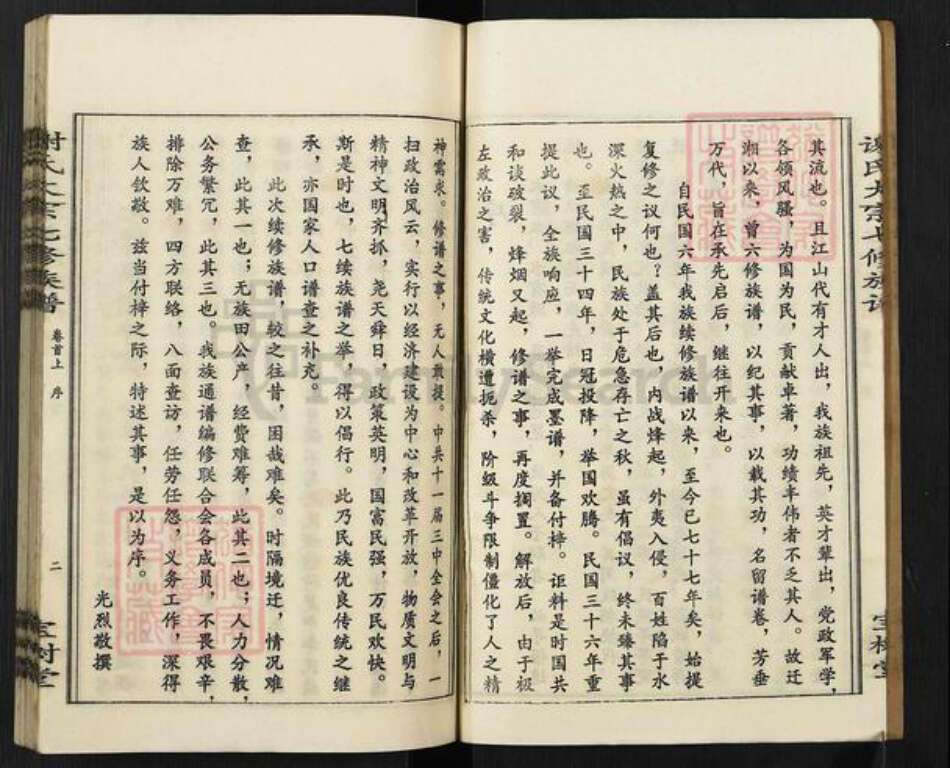 谢氏大宗七修族谱
宝树堂
其流也。且江山代有才人出，我族祖先，英才辈出，党政军学，
各领风骚，为国为民，贡献卓著，功绩丰伟者不乏其人。故迁
湘以来，曾六修族谱，以纪其事，以载其功，名留谱卷，芳垂
万代，旨在承先启后，继往开来也。
自民国六年我族续修族谱以来，至今已七十七年矣，始提
复修之议何也？盖其后也，内战烽起，外夷入侵，百姓陷于水
深火热之中，民族处于危急存亡之秋，虽有倡议，终未臻其事
也。至民国三十四年，日冠投降，举国欢腾。民国三十六年重
提此议，全族响应，一举完成墨谱，并备付梓。讵料是时国共
和谈破裂，烽烟又起，修谱之事，再度搁置。解放后，由于极
左政治之害，传统文化横遭扼杀，阶级斗争限制僵化了人之精
神需求。修谱之事，无人敢提。中共十一届三中全会之后，一
扫政治风云，实行以经济建设为中心和改革开放，物质文明与
精神文明齐抓，尧天舜日，政策英明，国富民强，万民欢快。
斯是时也，七续族谱之举，得以倡行。此乃民族优良传统之继
承，亦国家人口谱查之补充。
此次续修族谱，较之往昔，困哉难矣。时隔境迁，情况难
查，此其一也；无族田公产，经费难筹，此其二也；人力分散，
公务繁冗，此其三也。我族通谱编修联合会各成员，不畏艰辛，
排除万难，四方联络，八面查访，任劳任怨，义务工作，深得
族人钦敬。兹当付梓之际，特述其事，是以为序。
光烈敬撰
谢氏大宗七修族谱
卷首上 序
二
宝树堂
FamilySearch